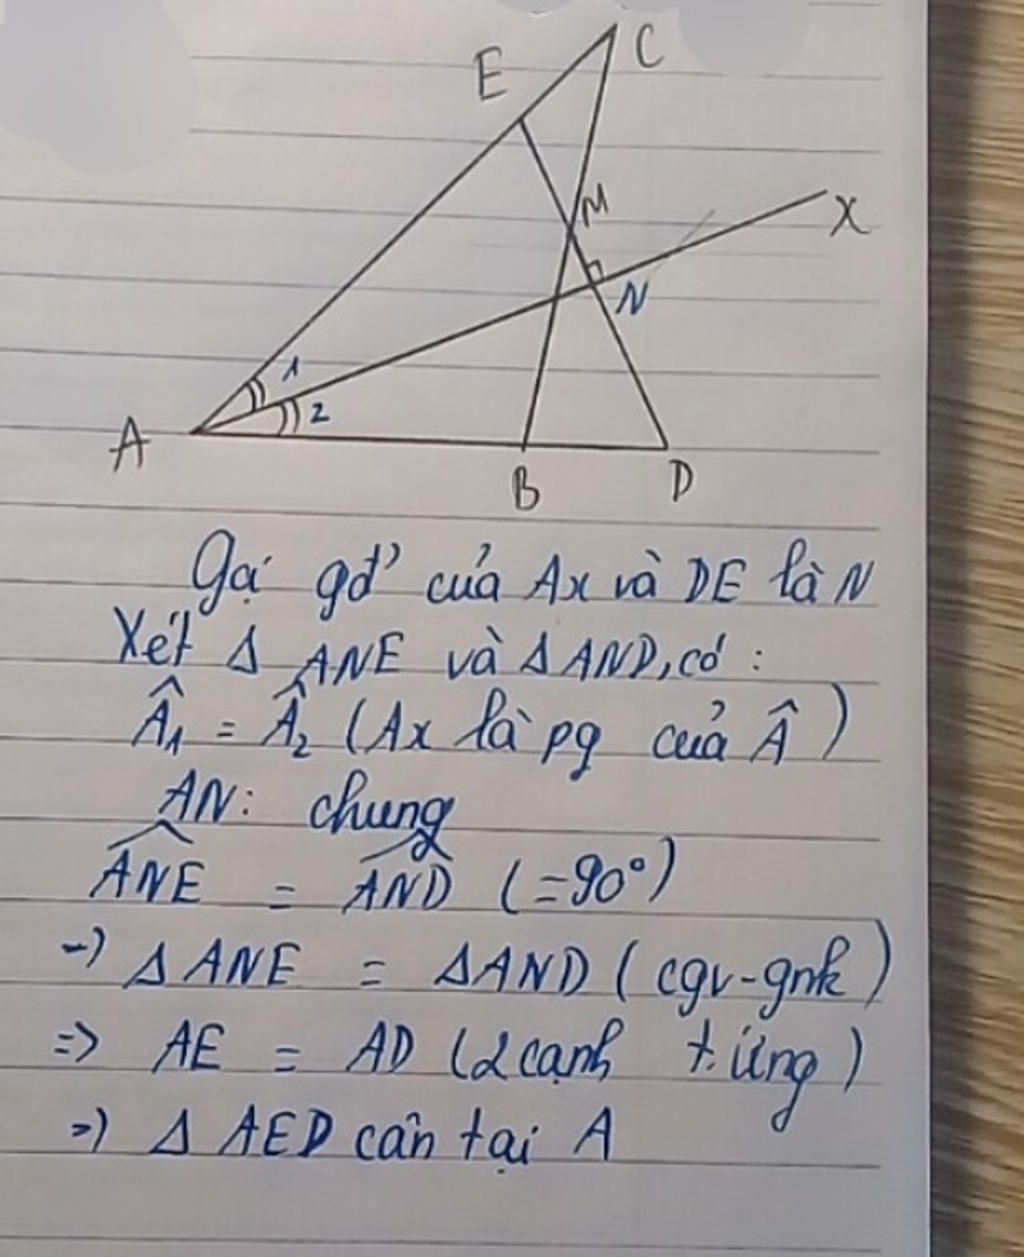 E
C
M
X
N
1
2
A
B
D
Gọi gđ' của Ax và DE là N
Xét Δ ANE và Δ AND, có :
Â₁ = Â₂ (Ax là pg của Â)
AN: chung
ANE = AND (=90°)
=> Δ ANE = Δ AND (cgv-gnk)
=> AE = AD (2 cạnh t.ứng)
=> Δ AED cân tại A